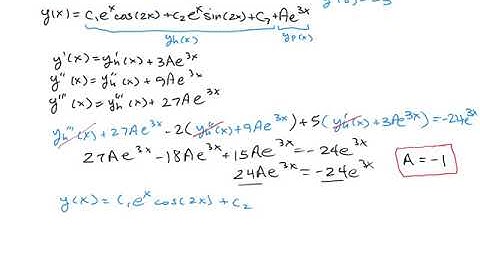 y(x) = C₁eˣcos(2x) + C₂eˣsin(2x) + C₃ + Ae³ˣ
yₕ(x) yₚ(x)
y'(x) = yₕ'(x) + 3Ae³ˣ
y''(x) = yₕ''(x) + 9Ae³ˣ
y'''(x) = yₕ'''(x) + 27Ae³ˣ
yₕ'''(x) + 27Ae³ˣ - 2(yₕ''(x) + 9Ae³ˣ) + 5(yₕ'(x) + 3Ae³ˣ) = -24e³ˣ
27Ae³ˣ - 18Ae³ˣ + 15Ae³ˣ = -24e³ˣ
24Ae³ˣ = -24e³ˣ
A = -1
y(x) = C₁eˣcos(2x) + C₂